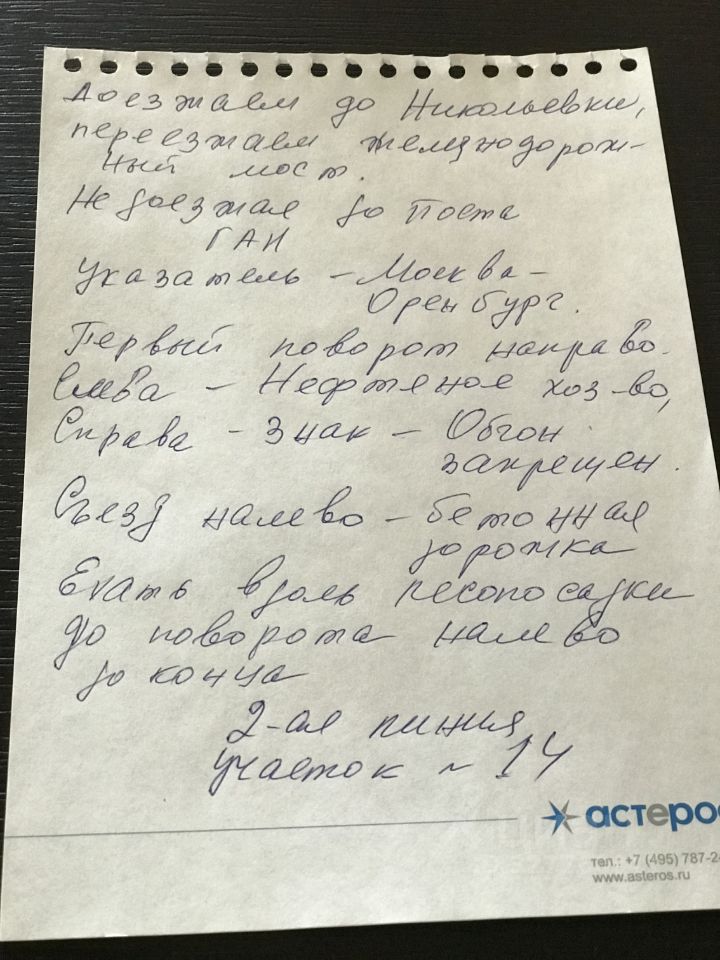 Доезжаем до Никольевки,
переезжаем железнодорож-
ный мост.
Не доезжая до Поста
ГАИ
Указатель – Москва –
Оренбург.
Первый поворот направо.
Слева – Нефтяное хоз-во,
Справа – знак – Обгон
запрещен.
Съезд налево – бетонная
дорожка
Ехать вдоль лесопосадки
до поворота налево
до конца
2-ая линия
участок ~ 14
астерос
тел.: +7 (495) 787-24
www.asteros.ru